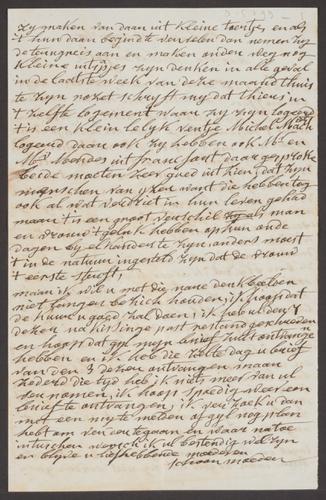 zy maken van daar uit kleine toertjes en als
't hun daar begind te vervelen dan nemen zy
de terugreis aan en maken onder weg nog
kleine uitstapjes zy denken in alle geval
in de laatste week van deze maand thuis
te zyn nozet schryft my dat thieus in
't zelfde logement waar zy zyn logeerd
't is een klein lelyk ventje Michel
logeerd daar ook zy hebben ook Mr en
Mde Mendes uit frankfort daar gesproke
beide moeten zeer goed uit zien dat zyn
menschen van yzer want die hebben tog
ook al wat verdriet in hun leven gehad
maar 't is een groot verschil als man
en vrouw 't geluk hebben op hun oude
dagen by elkander te zyn anders moest
't in de natuur ingesteld zyn dat de vrouw
't eerste sturft
maar ik wil u met die nare denkbeelden
niet langer bezich houden, ik hoop dat
de haver u goed zal doen, ik heb u den 1
dezer na kissingen post restand geschreven
en hoop dat gy myn brief zult ontvangen
hebben en ik heb die zelfde dag u brief
van den 3 dezer ontvangen maar
zederd die tyd heb ik niets meer van u
vernomen, ik hoop spoedig weer een
brief te ontvangen, ik verzoek u dan
met een my te melden of gy nog plan
hebt om verder te gaan en waar na toe
intusschen wensch ik u bestendig wel zyn
en blyve u liefhebbende moeder en
schoonmoeder